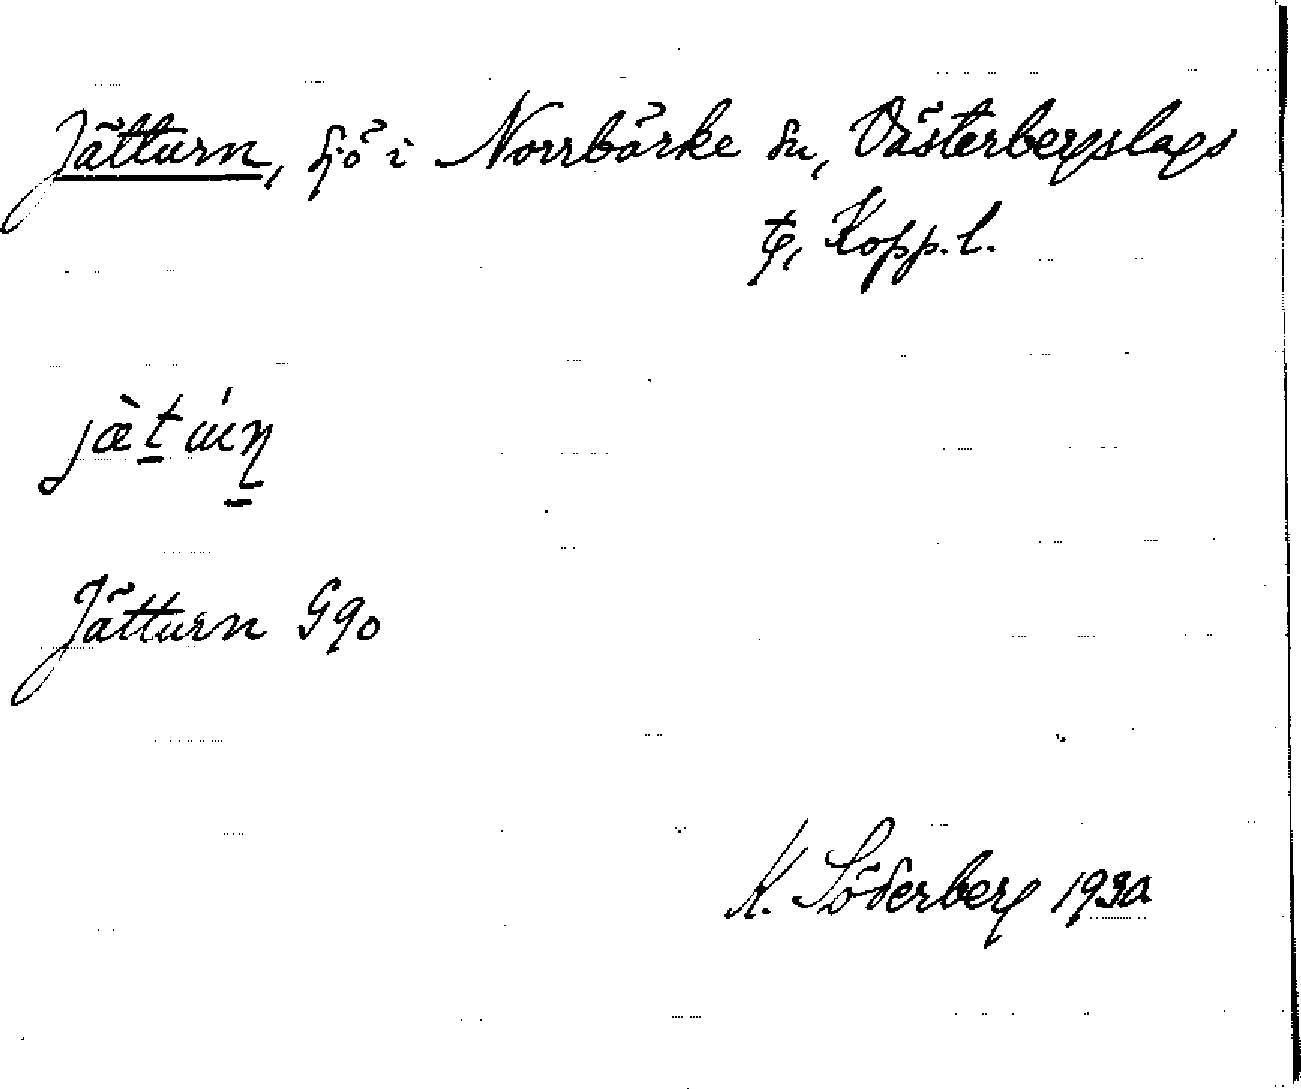 Jätturn, sjö i Norrbärke sn, Västerbergslags
tg, Kopp. l.
Jätturn Ggo
K. Söderberg